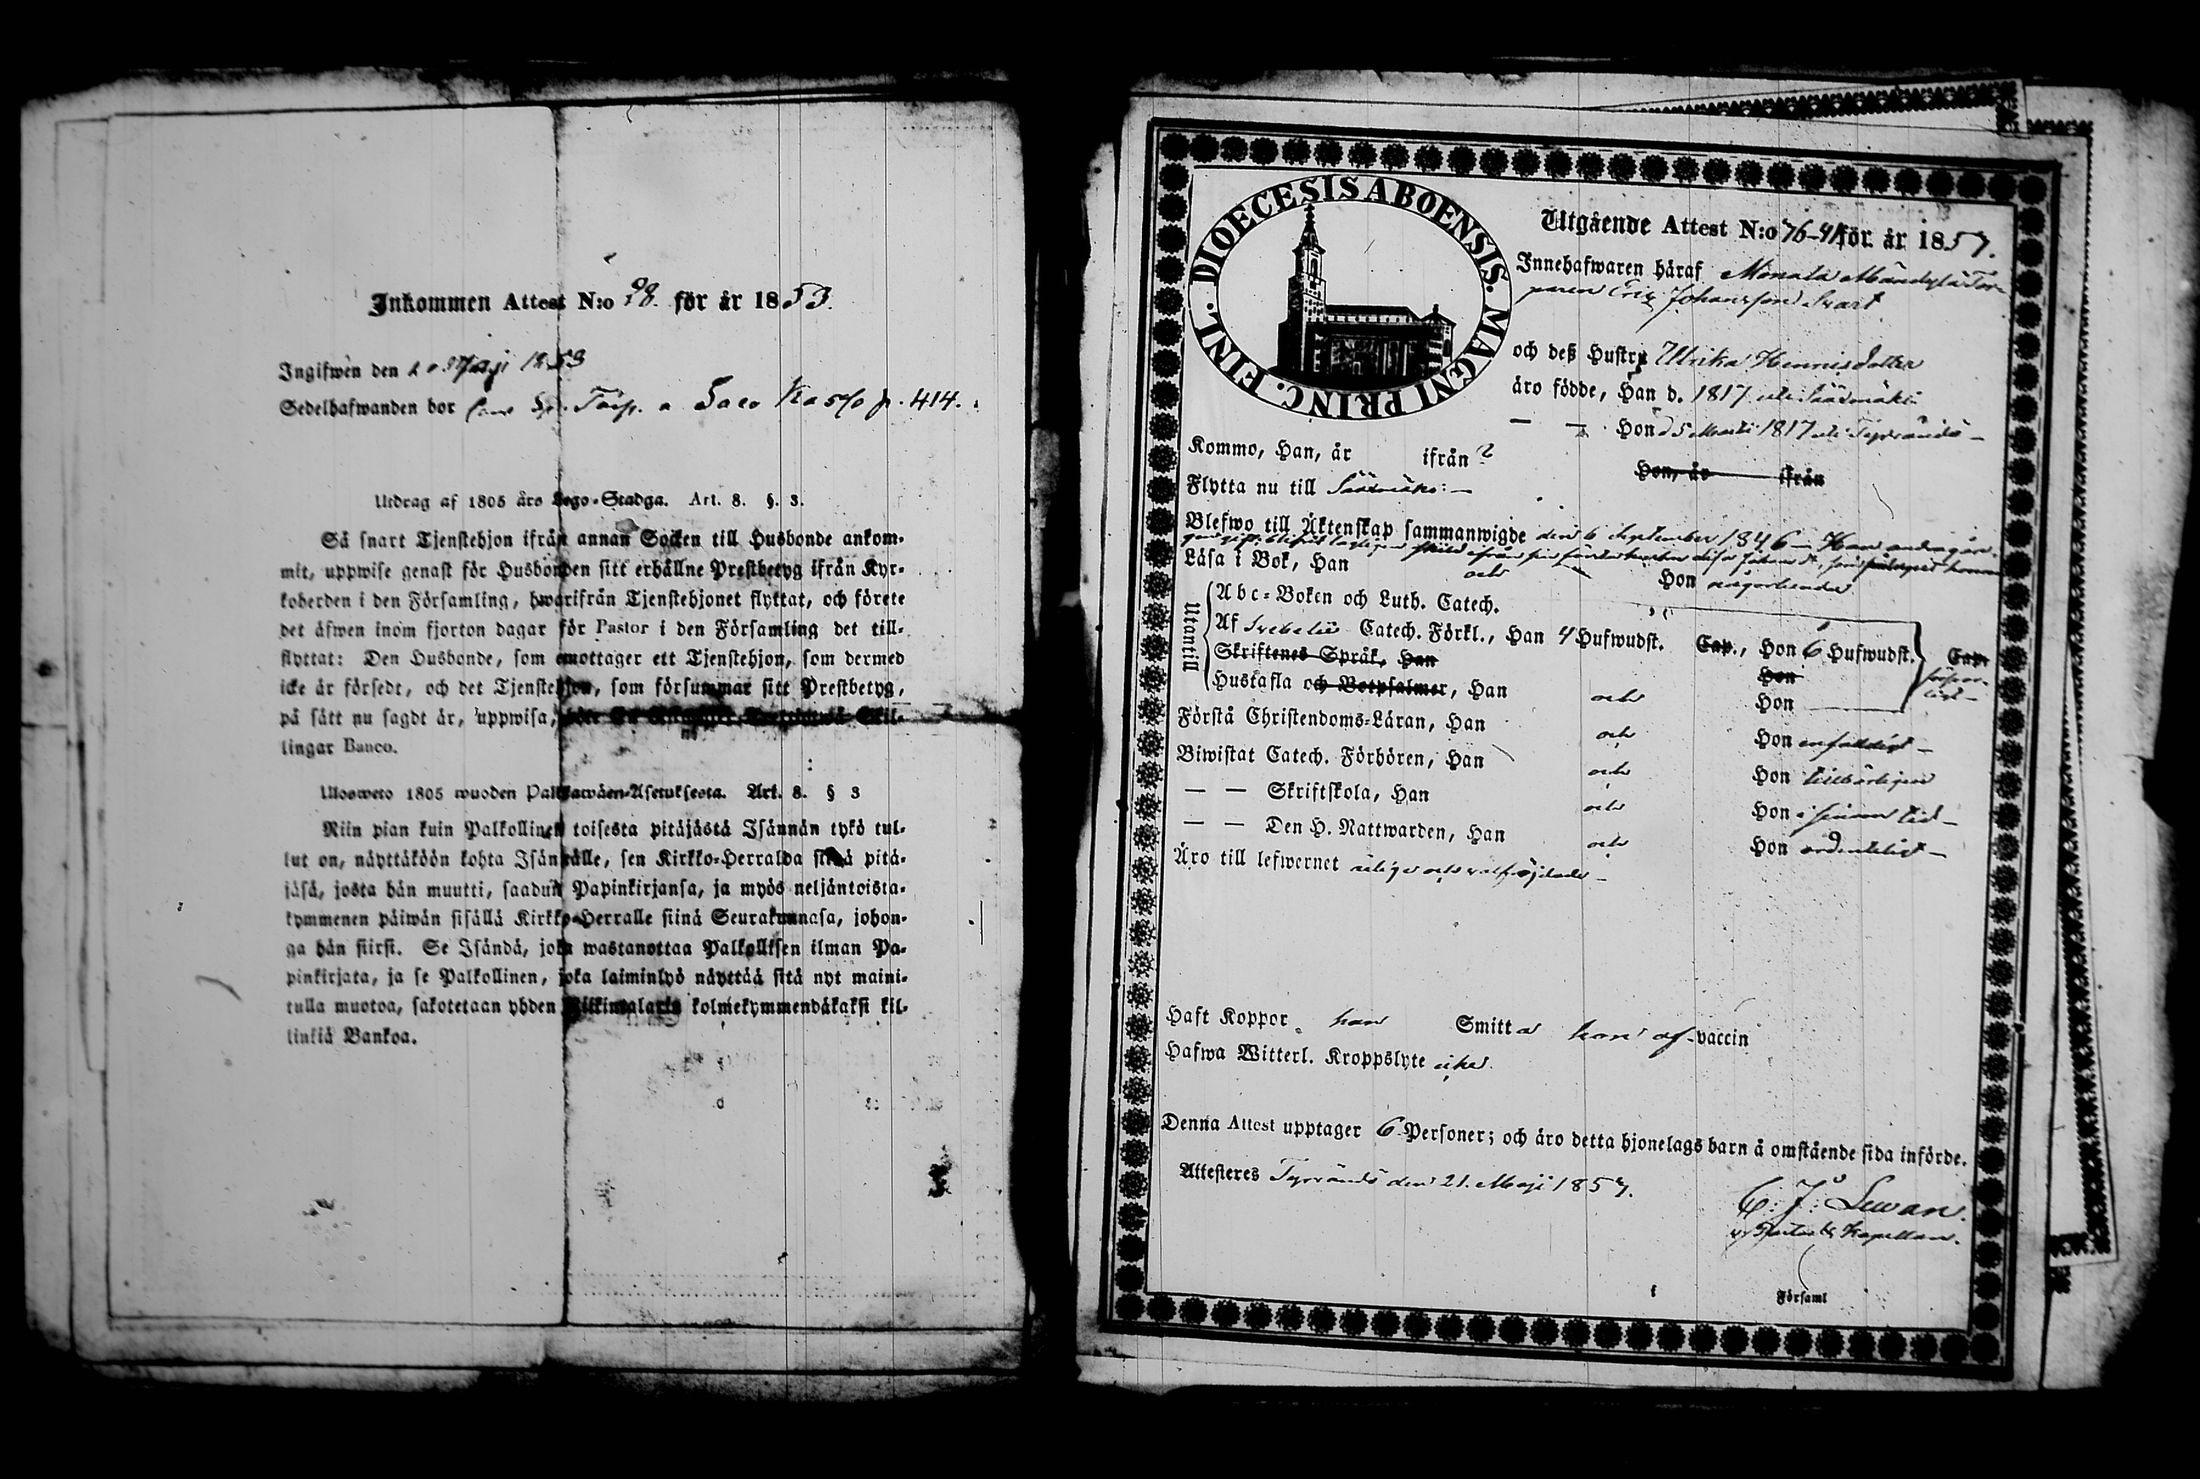 Inkommen Attest N:o 28. för år 1853.
Ingifwen den 20 Maji 1853
Sedelhafwanden bor Torp. a Saco Kasko p. 414.
Utdrag af 1805 års Lego-Stadga. Art. 8. §. 3.
Så snart Tjenstehjon ifrån annan Socken till Husbonde ankom-
mit, uppwise genast för Husbonden sitt erhållne Prestbetyg ifrån Kyr-
koherden i den Församling, hwarifrån Tjenstehjonet flyttat, och förete
det äfwen inom fjorton dagar för Pastor i den Församling det till-
flyttat: Den Husbonde, som emottager ett Tjenstehjon, som dermed
icke är försedt, och det Tjenstehjon, som försummar sitt Prestbetyg,
på sätt nu sagdt är, uppwisa, Skil-
lingar Banco.
Ulosweto 1805 wuoden Palkkawäen-Asetuksesta. Art. 8. § 3
Niin pian kuin Palkollinen toisesta pitäjästä Isännän tykö tul-
lut on, näyttäköön kohta Isännälle, sen Kirkko-Herralda siinä pitä-
jäsä, josta hän muutti, saadun Papinkirjansa, ja myös neljäntoista-
kymmenen päiwän sisällä Kirkko-Herralle siinä Seurakunnasa, johon-
ga hän siirsi. Se Isändä, joka wastanottaa Palkollisen ilman Pa-
pinkirjata, ja se Palkollinen, joka laiminlyö näyttää sitä nyt maini-
tulla muotoa, sakotetaan yhden Riikintalarin kolmekymmendäkaksi kil-
linkiä Bankoa.
DIOECESIS ABOENSIS. MAGNI PRINC. FINL.
Utgående Attest N:o 76-41 för år 1857.
Innehafwaren häraf Monala Mändylä Tor-
paren Eric Johansson Svart
och deß Hustru Ulrika Henricsdotter
äro födde, Han d. 1817 uti Sääxmäki
— — Hon d 5 Martii 1817 uti Tyrvändö —
Kommo, Han, år ifrån ? Hon, år ifrån
Flytta nu till Sääxmäki: —
Blefwo till Äktenskap sammanwigde den 6 September 1846 — Han andra gån-
Läsa i Bok, Han och Hon någorlunda
Utantill
Abc-Boken och Luth. Catech.
Af Svebelii Catech. Förkl., Han 4 Hufwudst. Cap., Hon 6 Hufwudst. Cap.
Skriftenes Språk, Han Hon
Hustafla och Botpsalmer, Han och Hon
Förstå Christendoms-Läran, Han och Hon enfaldigt —
Biwistat Catech. Förhören, Han och Hon tillbörligen
— — Skriftskola, Han och Hon i sinom tid —
— — Den H. Nattwarden, Han och Hon ordentligt —
Äro till lefwernet ärlige och välfrejdade —
Haft Koppor han Smitta hon af vaccin
Hafwa Witterl. Kroppslyte icke
Denna Attest upptager 6 Personer; och äro detta hjonelags barn å omstående sida införde.
Attesteres Tyrvändö den 21. Maji 1857.
C. J. Lewan.
v. Pastor & Kapellan.
Församl